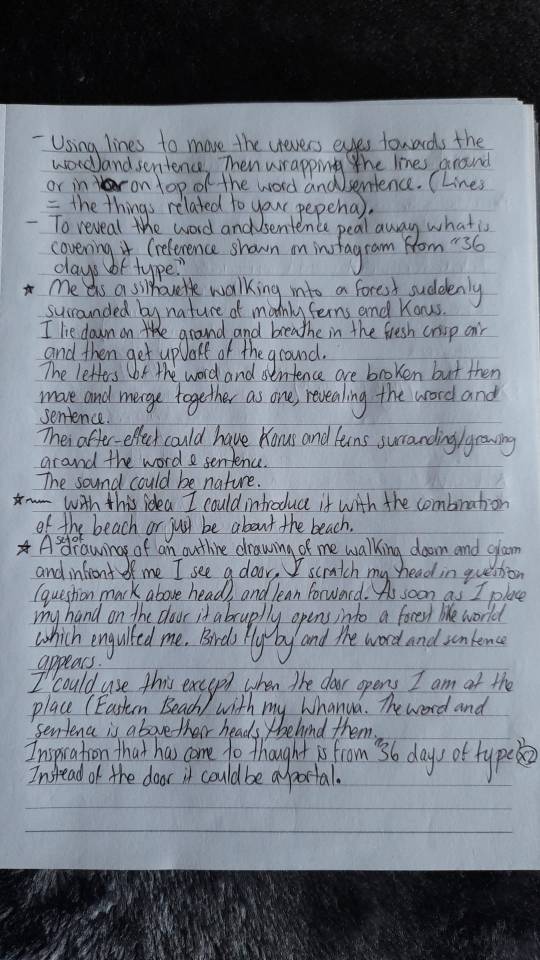 - Using lines to move the viewers eyes towards the
word and sentence. Then wrapping the lines around
or in or on top of the word and sentence. (Lines
= the things related to your pepeha).
- To reveal the word and sentence peal away what is
covering it (reference shown on instagram from "36
days of type."
* Me as a silhouette walking into a forest suddenly
surrounded by nature of mainly ferns and Korus.
I lie down on the ground and breathe in the fresh crisp air
and then get up off of the ground.
The letters of the word and sentence are broken but then
move and merge together as one, revealing the word and
sentence.
The after-effect could have Korus and ferns surrounding/growing
around the word & sentence.
The sound could be nature.
* With this idea I could introduce it with the combination
of the beach or just be about the beach.
* A set of drawings of an outline drawing of me walking doom and gloom
and infront of me I see a door. I scratch my head in question
(question mark above head) and lean forward. As soon as I place
my hand on the door it abruptly opens into a forest like world
which engulfed me. Birds fly by and the word and sentence
appears.
I could use this except when the door opens I am at the
place (Eastern Beach) with my Whanua. The word and
sentence is above their heads/behind them.
Inspiration that has come to thought is from "36 days of type" x2
Instead of the door it could be a portal.